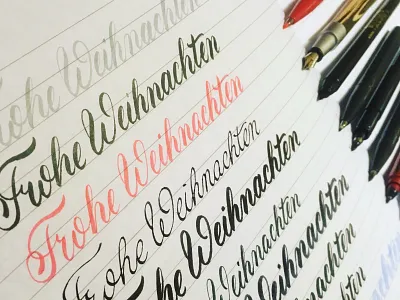 rohe Weihnachten
Frohe Weihnachten
Frohe Weihnachten
Frohe Weihnachten
he Weihnachten
Weihnachten
Weihnachten